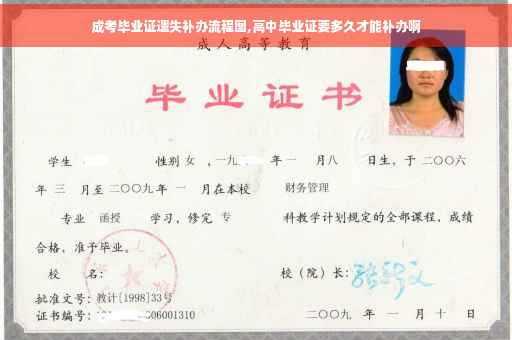 成考毕业证遗失补办流程图,高中毕业证要多久才能补办啊
成人高等教育
毕业证书
学生 性别 女 ，一九 年 一 月八 日生，于 二〇〇六
年 三 月至 二〇〇九 年 一 月在本校 财务管理
专业 函授 学习，修完 专 科教学计划规定的全部课程，成绩
合格，准予毕业。
校 名： 校（院）长：
批准文号：教计[1998]33号
证书编号： 06001310 二〇〇九 年 一 月 十 日